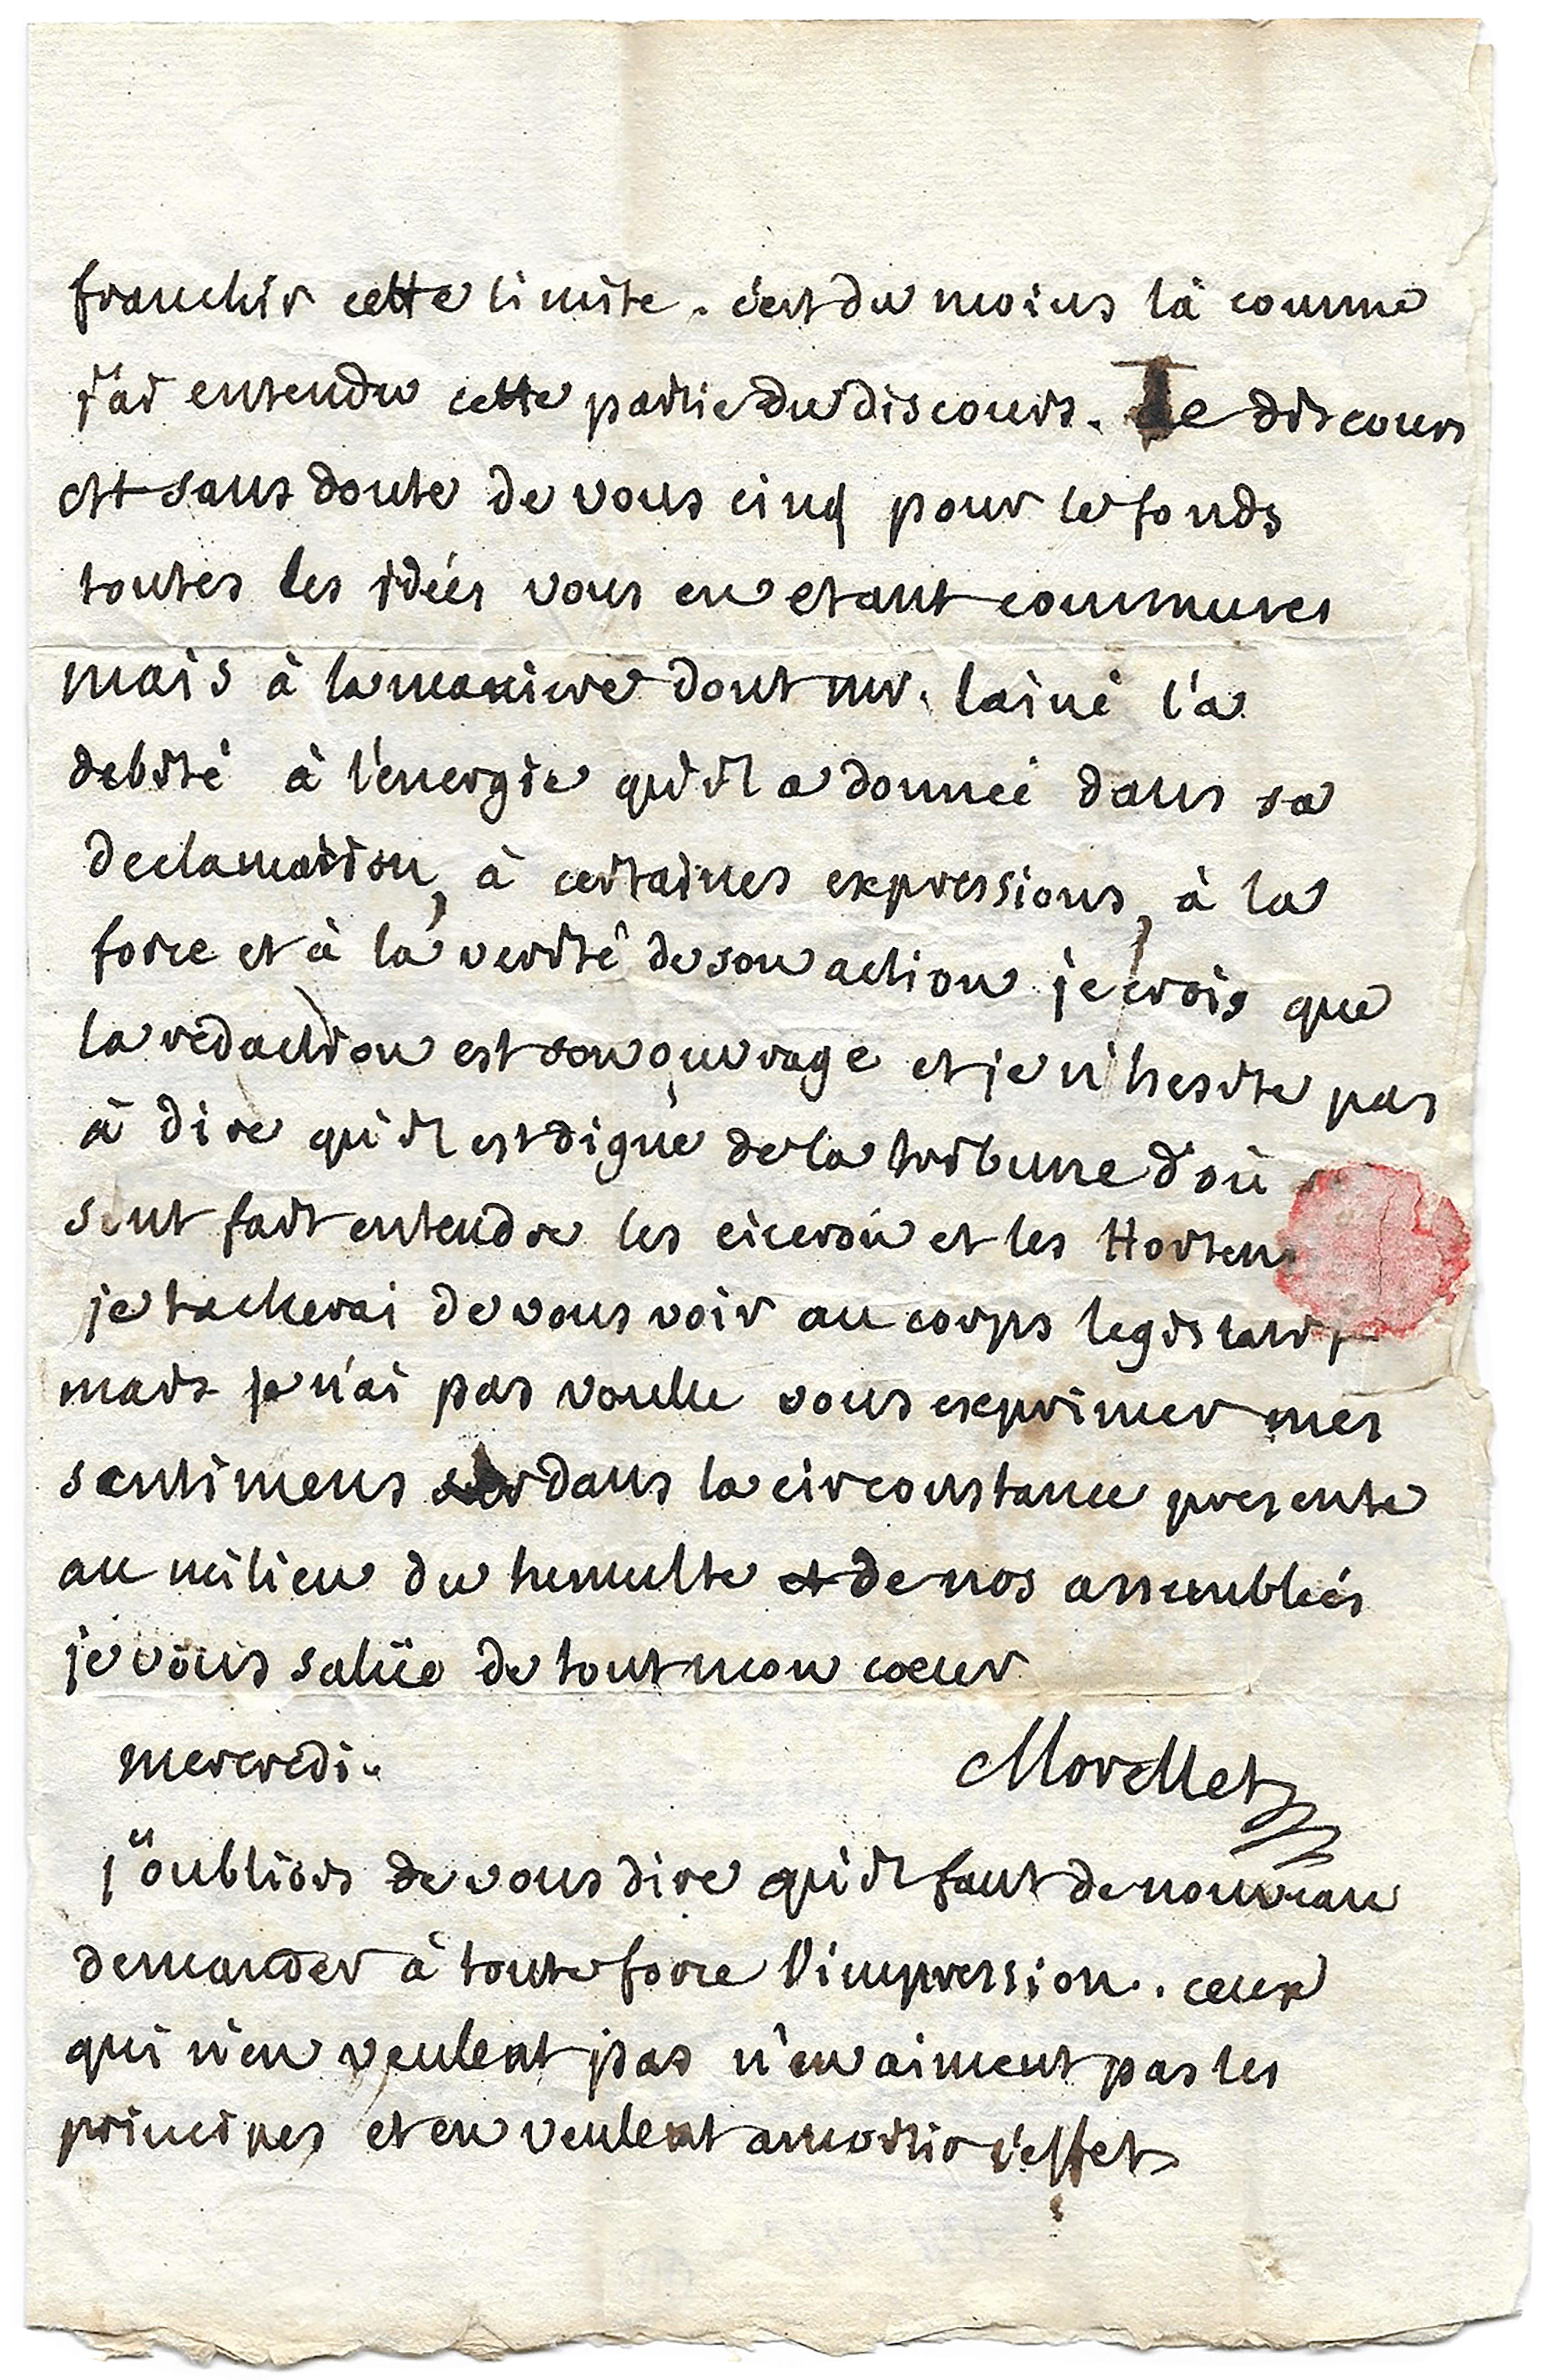 franchir cette limite. c'est du moins là comme
j'ai entendu cette partie du discours. Le discours
est sans doute de vous cinq pour le fonds
toutes les idées vous en etant communes
mais à la maniere dont mr. lainé l'a
debité à l'energie qu'il a donnée dans sa
declamation, à certaines expressions, à la
force et à la verité de son action je crois que
la redaction est son ouvrage et je n'hesite pas
à dire qu'il est digne de la tribune d'où
sont fait entendre les ciceron et les Hortens
je tacherai de vous voir au corps legislatif
mais je n'ai pas voulu vous exprimer mes
sentimens dans la circonstance presente
au milieu du tumulte de nos assemblées
je vous salüe de tout mon coeur
mercredi.
Morellet
j'oubliois de vous dire qu'il faut de nouveau
demander à toute force l'impression. ceux
qui n'en veulent pas n'en aiment pas les
principes et en veulent amortir l'effet